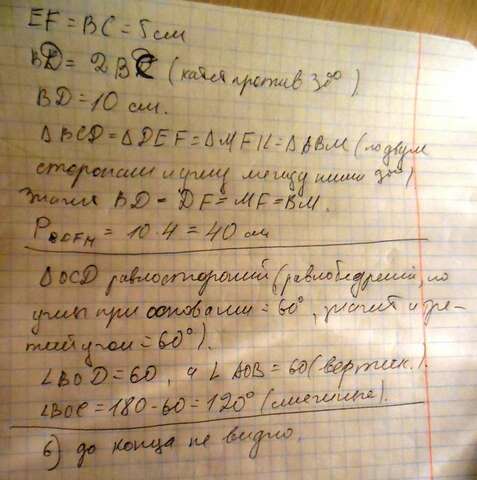 EF = BC = 5 см
BD = 2BC (катет против 30°)
BD = 10 см.
△BCD = △DEF = △MFK = △ABM (по двум
сторонам и углу между ними
значит BD = DF = MF = BM.
P = 10·4 = 40 см
△OCD равносторонний (равнобедренный, но
углы при основании = 60°, значит и тре-
тий угол = 60°).
∠BOD = 60, и ∠AOB = 60 (вертик.).
∠BOC = 180 - 60 = 120° (смежные).
6) до конца не видно.